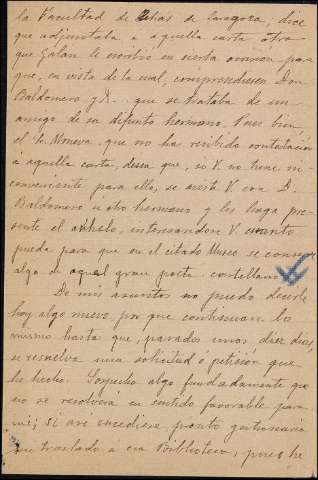 la Facultad de Letras de Zaragoza, dice
que adjuntaba a aquella carta otra
que Galán le escribió en cierta ocasión para
que, en vista de la cual, comprendiesen Don
Baldomero y D. que se trataba de un
amigo de su difunto hermano. Pues bien
el Sr. Moneva que no ha recibido contestación
á aquella carta, desea que, si V. no tiene in-
conveniente para ello, se aviste V. con D.
Baldomero ú otro hermano y les haga pre-
sente el anhelo, interesandose V. cuanto
pueda para que en el citado Museo se conserve
algo de aquel gran poeta castellano.
De mis asuntos no puedo decirle
hoy algo nuevo por que continuan lo
mismo hasta que, pasados unos diez dias,
se resuelva una solicitud ó petición que
he hecho. Sospecho algo fundadamente que
no se resolverá en sentido favorable para
mi; si así sucediere pronto gestionaria
mi traslado a esa Biblioteca, pues he